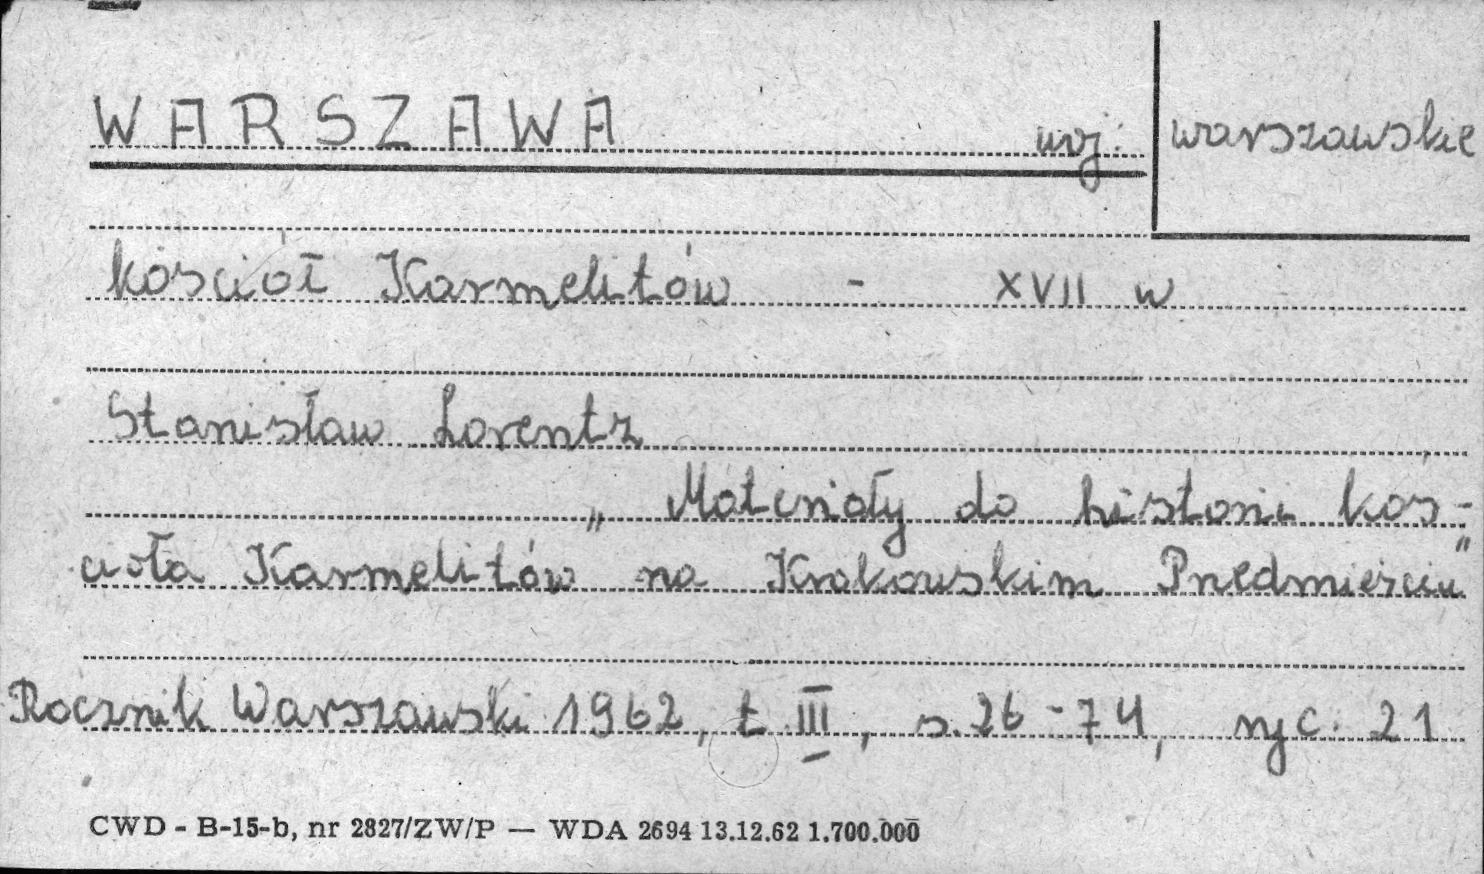 WARSZAWA woj. warszawskie
kościół Karmelitów - XVII w
Stanisław Lorentz
„Materiały do historii koś-
cioła Karmelitów na Krakowskim Przedmieściu"
Rocznik Warszawski 1962, t III, s. 26-74, ryc. 21
CWD - B-15-b, nr 2827/ZW/P — WDA 2694 13.12.62 1.700.000